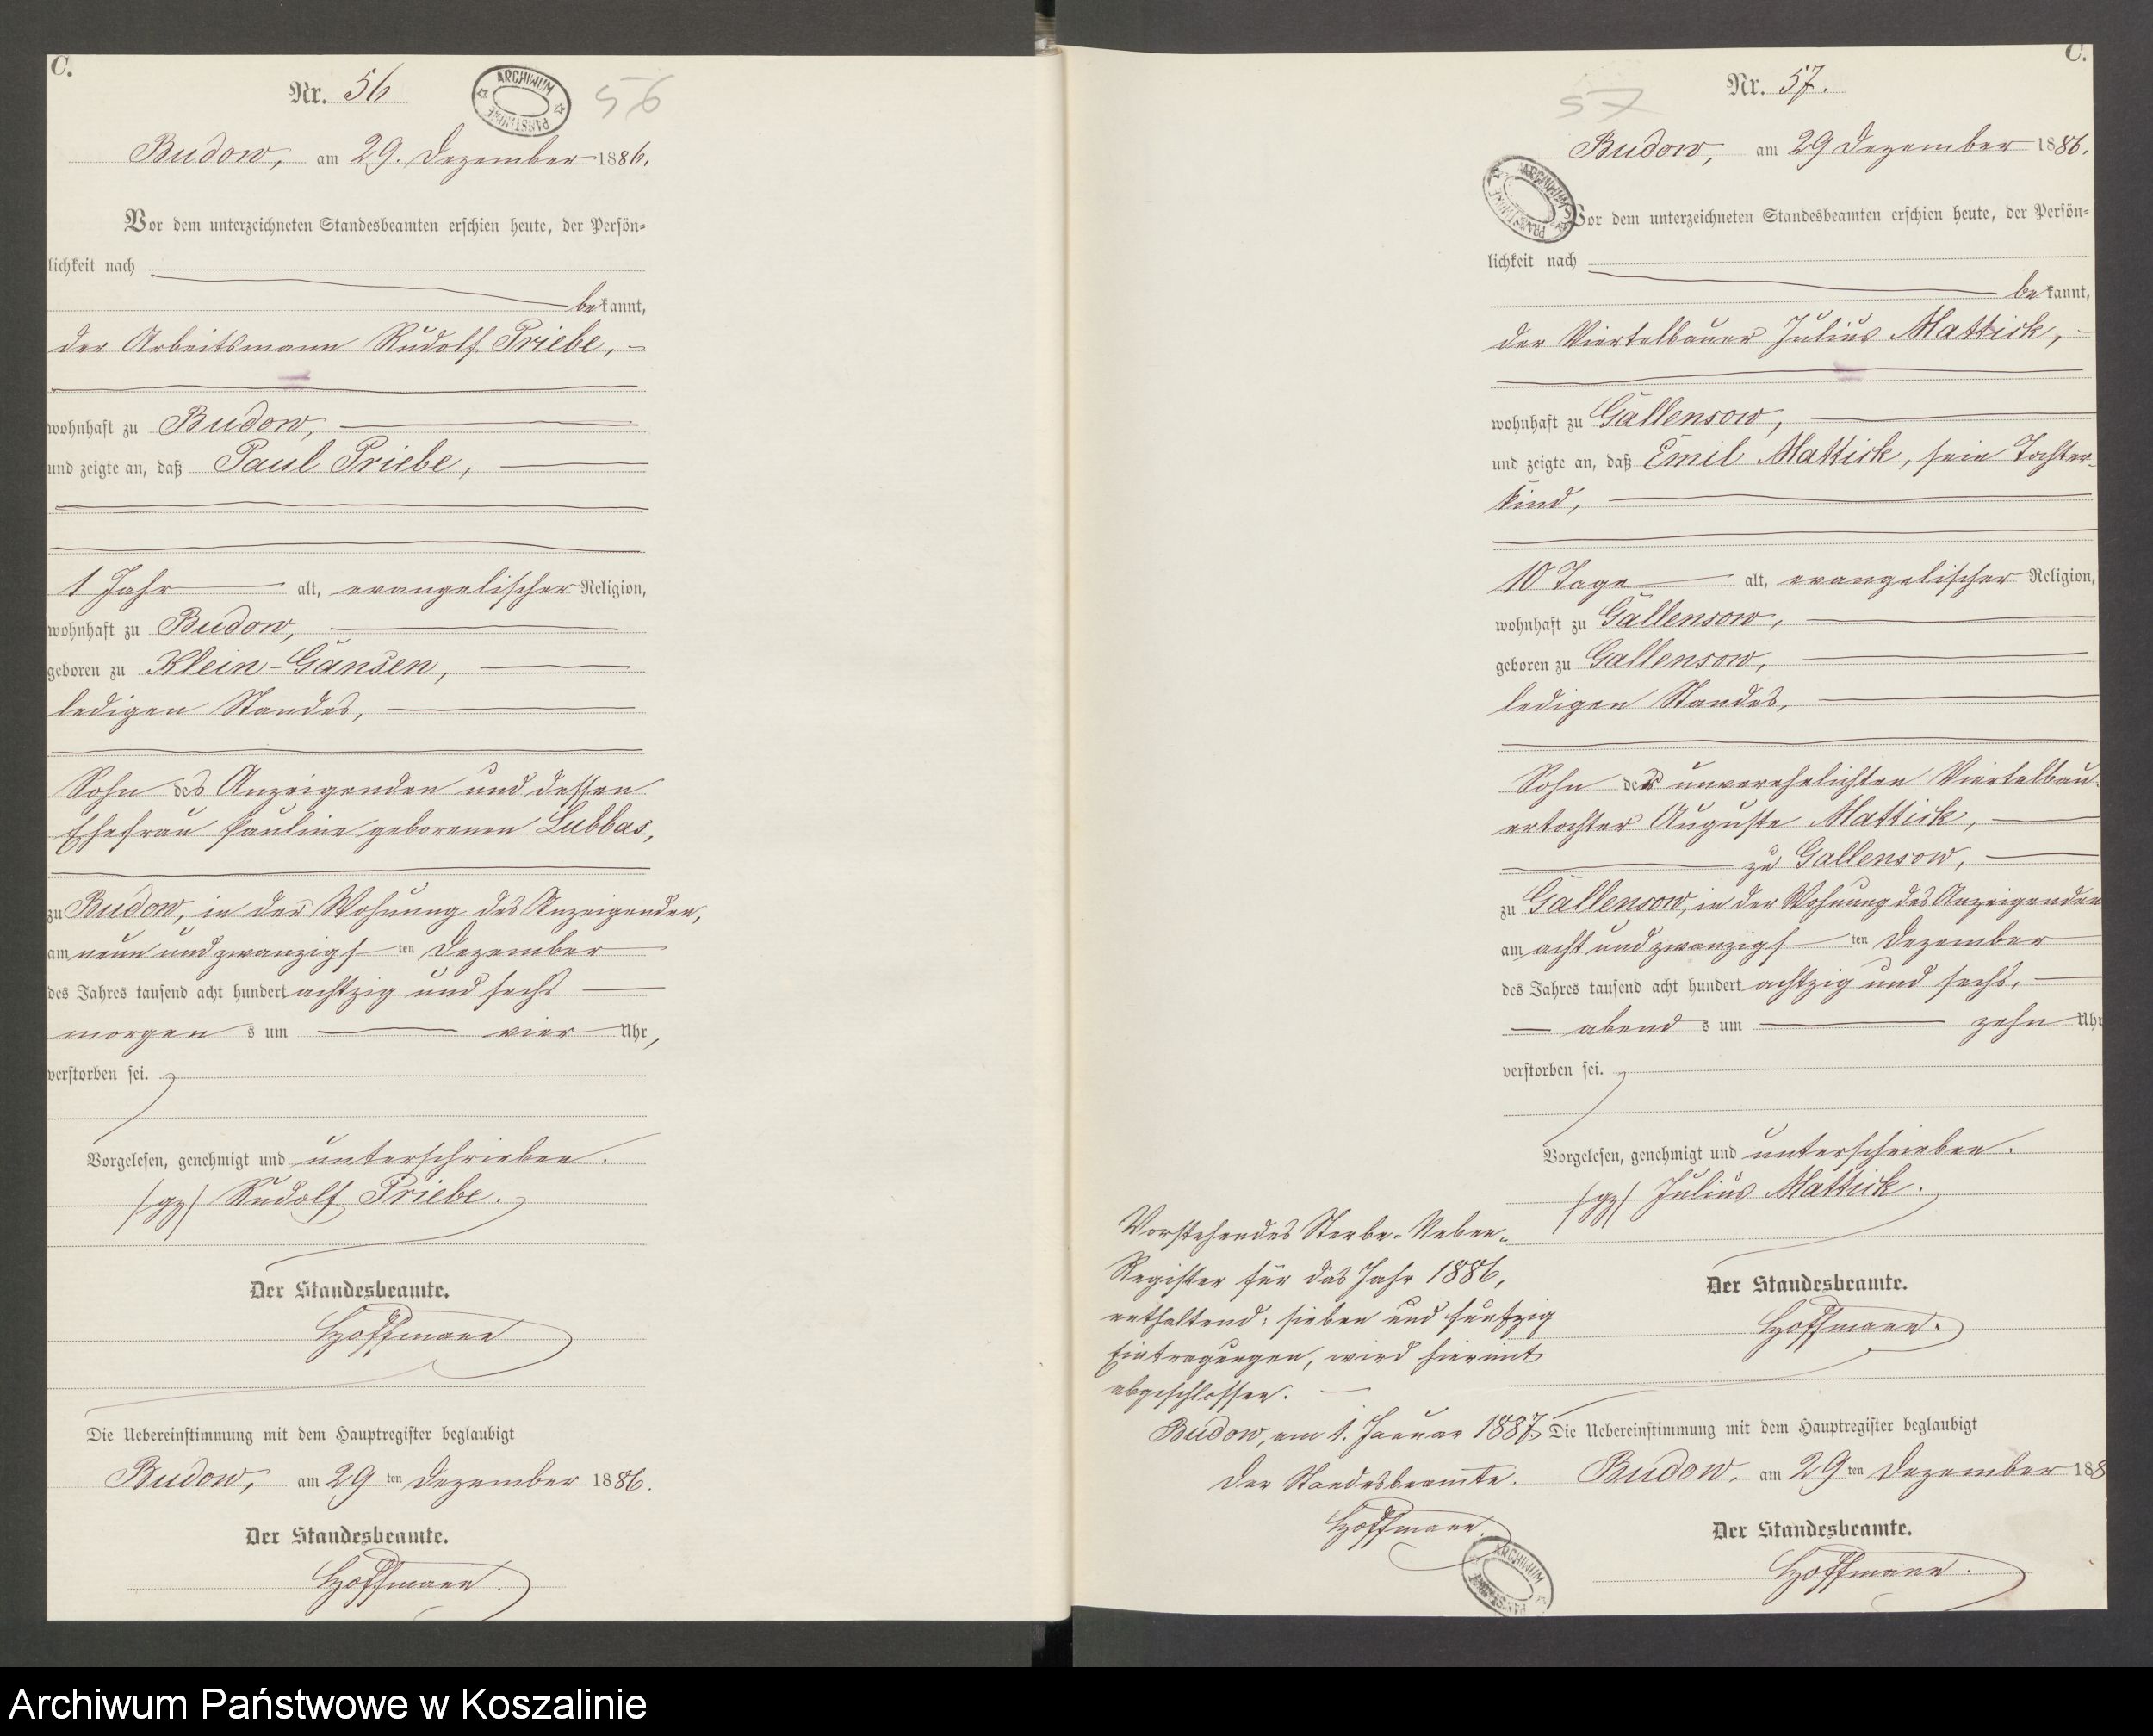 C.
Nr. 56
ARCHIWUM PAŃSTWOWE
56
Budow, am 29. Dezember 1886.
Vor dem unterzeichneten Standesbeamten erschien heute, der Persön-
lichkeit nach
bekannt,
der Arbeitsmann Rudolf Priebe,
wohnhaft zu Budow,
und zeigte an, daß Paul Priebe,
1 Jahr alt, evangelischer Religion,
wohnhaft zu Budow,
geboren zu Klein-Gansen,
ledigen Standes,
Sohn des Anzeigenden und dessen
Ehefrau Pauline geborenen Lubbas,
zu Budow, in der Wohnung des Anzeigenden,
am neun und zwanzigsten Dezember
des Jahres tausend acht hundert achtzig und sechs
morgens um vier Uhr,
verstorben sei.
Vorgelesen, genehmigt und unterschrieben.
(gz) Rudolf Priebe.
Der Standesbeamte.
Hoffmann
Die Uebereinstimmung mit dem Hauptregister beglaubigt
Budow, am 29ten Dezember 1886.
Der Standesbeamte.
Hoffmann.
C.
Nr. 57.
57
Budow, am 29 Dezember 1886.
ARCHIWUM PAŃSTWOWE
Vor dem unterzeichneten Standesbeamten erschien heute, der Persön-
lichkeit nach
bekannt,
der Viertelbauer Julius Mattick,
wohnhaft zu Gallensow,
und zeigte an, daß Emil Mattick, sein Tochter-
kind,
10 Tage alt, evangelischer Religion,
wohnhaft zu Gallensow,
geboren zu Gallensow,
ledigen Standes,
Sohn der unverehelichten Viertelbau-
ertochter Auguste Mattick,
zu Gallensow,
zu Gallensow, in der Wohnung des Anzeigenden
am acht und zwanzigsten Dezember
des Jahres tausend acht hundert achtzig und sechs,
abends um zehn Uhr
verstorben sei.
Vorgelesen, genehmigt und unterschrieben.
(gz) Julius Mattick.
Der Standesbeamte.
Hoffmann.
Vorstehendes Sterbe-Neben-
Register für das Jahr 1886,
enthaltend: sieben und funfzig
Eintragungen, wird hiermit
abgeschlossen.
Budow, am 1. Januar 1887.
Der Standesbeamte.
Hoffmann.
ARCHIWUM PAŃSTWOWE
Die Uebereinstimmung mit dem Hauptregister beglaubigt
Budow, am 29ten Dezember 188
Der Standesbeamte.
Hoffmann.
Archiwum Państwowe w Koszalinie